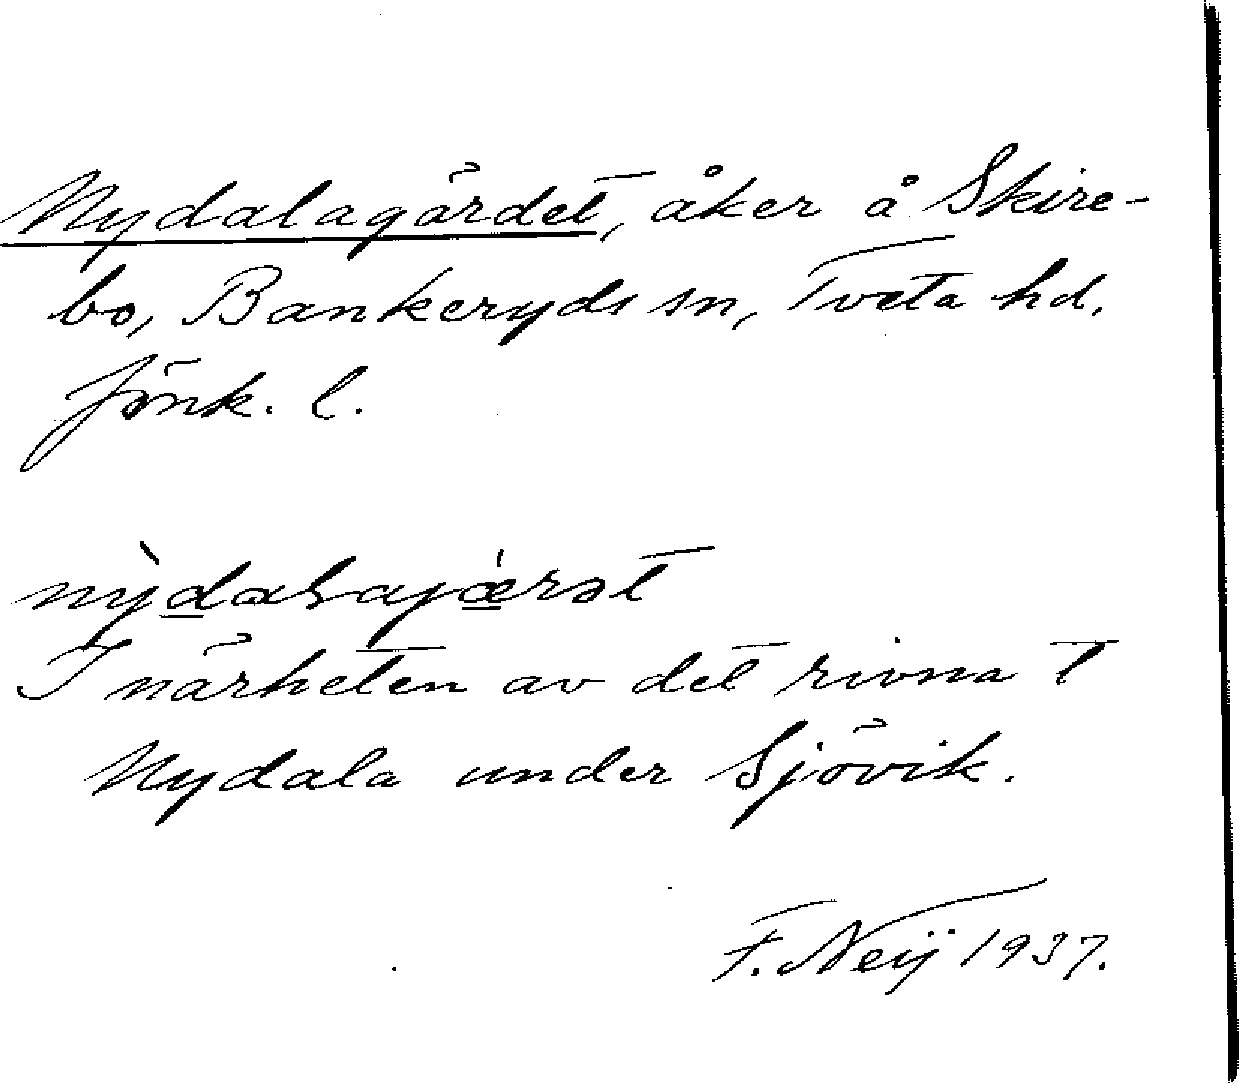 Nydalagärdet, åker å Skire-
bo, Bankeryds sn, Tveta hd.
Jönk. l.
I närheten av det rivna t
Nydala under Sjövik.
F. Neij 1937.